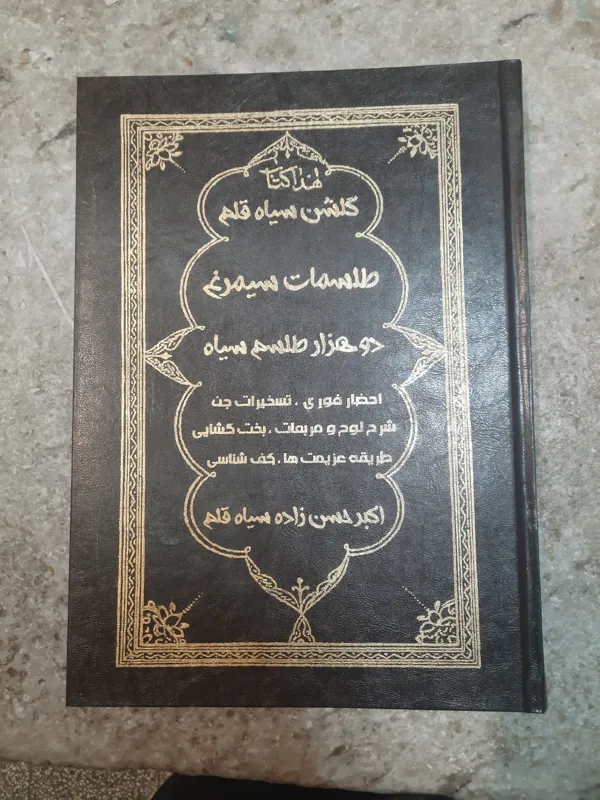 هذا کتاب
گلشن سیاه قلم
طلسمات سیمرغ
دو هزار طلسم سیاه
احضار فوری ، تسخیرات جن
شرح لوح و مربعات ، بخت کشایی
طریقه عزیمت ها ، کف شناسی
اکبر حسن زاده سیاه قلم